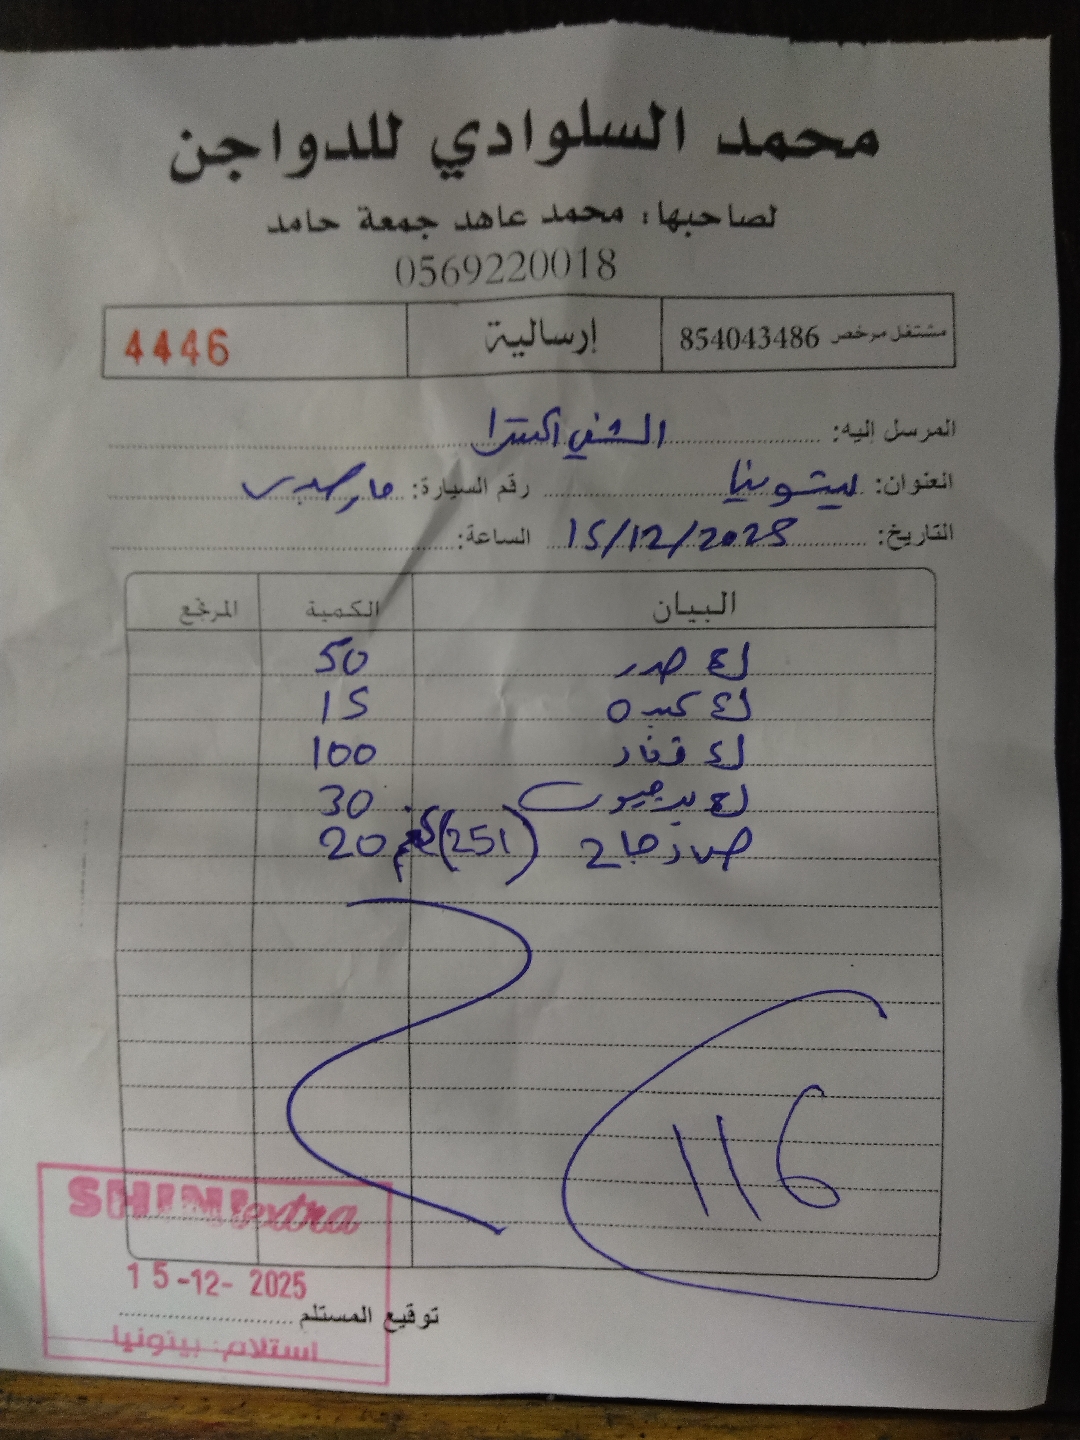 محمد السلوادي للدواجن
لصاحبها: محمد عاهد جمعة حامد
0569220018
مشتغل مرخص 854043486 إرسالية 4446
المرسل إليه: الشني اكسترا
العنوان: بيتونيا رقم السيارة:
التاريخ: 15/12/2025 الساعة:
البيان الكمية المرتجع
كغ صدر 50
كغ كبده 15
كغ 100
كغ 30
دجاج (251) كغم 20
116
SHINI extra
15-12-2025
توقيع المستلم
استلام: بيتونيا